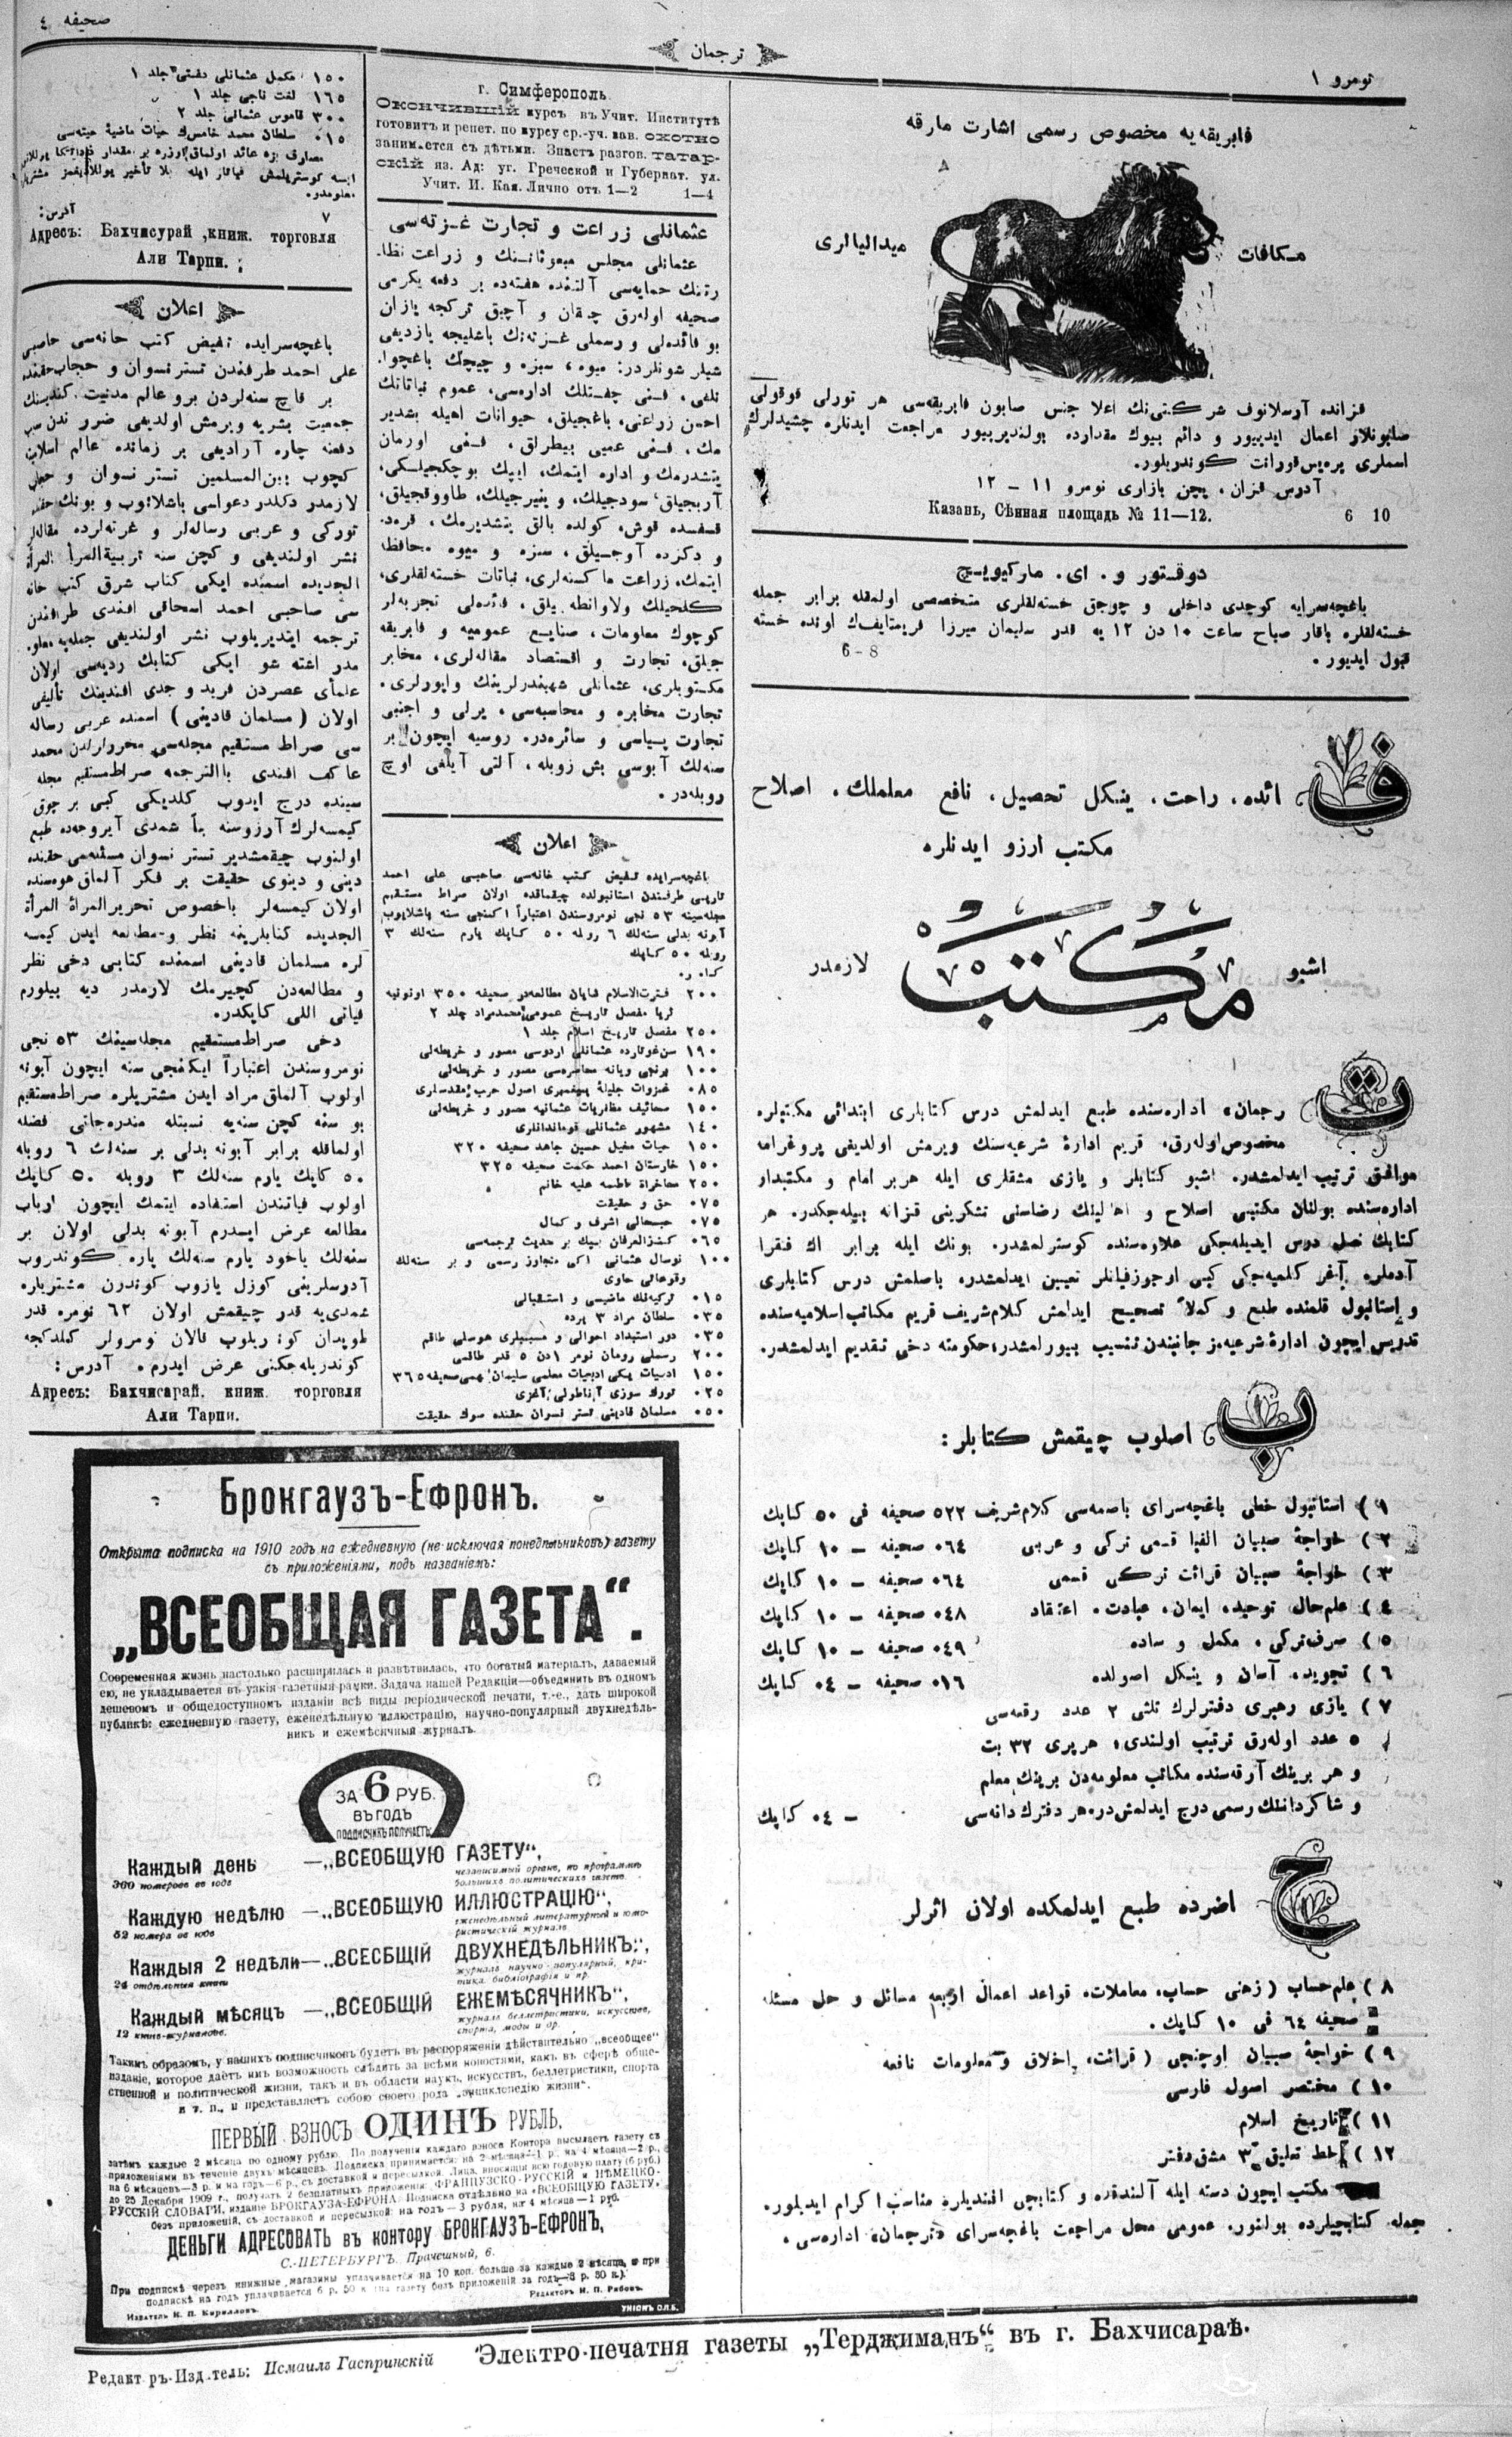 نومرو ١
ترجمان
صحیفه ٤
فابریقه‌یه مخصوص رسمی اشارت مارقه
مكافات
میدالیالری
قزانده آرسلانوف شركتی‌نك اعلا جنس صابون فابریقه‌سی هر تورلی قوقولی
صابونلار اعمال ایدییور و دائم بیوك مقدارده بولندیرییور مراجعت ایدنلره چشیدلرك
اسملری پریس‌قورانت كوندریلور.
آدرس قزان، پچن بازاری نومرو ١١ – ١٢
Казань, Сѣнная площадь № 11—12. 6 10
دوقتور و. ای. ماركیویچ
باغچه‌سرایه كوچدی داخلی و چوجق خسته‌لقلری متخصصی اولمقله برابر جمله
خسته‌لقلره باقار صباح ساعت ١٠ دن ١٢ یه قدر سلیمان میرزا اونده خسته
قبول ایدیور. 6-8
فائده، راحت، ینكل تحصیل، نافع معلملك، اصلاح
مكتب ارزو ایدنلره
اشبو
مكتب
لازمدر
ترجمان» اداره‌سنده طبع ایدلمش درس كتابلری ابتدائی مكتبلره
مخصوص اوله‌رق، قریم ادارۀ شرعیه‌سنك ویرمش اولدیغی پروغرامه
موافق ترتیب ایدلمشدر. اشبو كتابلر و یازی مشقلری ایله هربر امام و مكتبدار
اداره‌سنده بولنان مكتبی اصلاح و اهالینك رضاسنی تشكرینی قزانه بیله‌جكدر. هر
كتابك نصل درس ایدیله‌جكی علاوه‌سنده كوسترلمشدر. بونك ایله برابر اك فقرا
آدملره آغر كلمیه‌جكی كبی اوجوز فیاتلر تعیین ایدلمشدر. باصلمش درس كتابلری
و استانبول قلمنده طبع و كملاً تصحیح ایدلمش كلام‌شریف قریم مكاتب اسلامیه‌سنده
تدریس ایچون ادارۀ شرعیه‌مز جانبندن تنسیب بیورلمشدر؛ حكومته دخی تقدیم ایدلمشدر.
باصلوب چیقمش كتابلر:
١) استانبول خطی باغچه‌سرای باصمه‌سی كلام‌شریف ٥٢٢ صحیفه فی ٥٠ كاپك
٢) خواجۀ صبیان الفبا قسمی تركی و عربی ٠٦٤ صحیفه – ١٠ كاپك
٣) خواجۀ صبیان قرائت تركی قسمی ٠٦٤ صحیفه – ١٠ كاپك
٤) علم‌حال توحید، ایمان، عبادت، اعتقاد ٠٤٨ صحیفه – ١٠ كاپك
٥) صرف تركی، مكمل و ساده ٠٤٩ صحیفه – ١٠ كاپك
٦) تجوید، آسان و ینكل اصولده ٠١٦ صحیفه – ٠٤ كاپك
٧) یازی رهبری دفترلرك ثلثی ٢ عدد رقعه‌سی
٥ عدد اوله‌رق ترتیب اولندی؛ هربری ٣٢ بت
و هر برینك آرقه‌سنده مكاتب معلومه‌دن برینك معلم
و شاكرداننك رسمی درج ایدلمش‌در. هر دفترك دانه‌سی – ٠٤ كاپك
حاضرده طبع ایدلمكده اولان اثرلر
٨) علم‌حساب (زهنی حساب، معاملات، قواعد اعمال اربعه مسائل و حل مسئله
صحیفه ٦٤ فی ١٠ كاپك.
٩) خواجۀ صبیان اوچنجی (قرائت، اخلاق و معلومات نافعه
١٠) مختصر اصول فارسی
١١) تاریخ اسلام
١٢) خط تعلیق ٣ مشق دفتر
مكتب ایچون دسته ایله آلندقده و كتابچی افندیلره مناسب اكرام ایدیلور.
جمله كتابچیلرده بولنور. عمومی محل مراجعت باغچه‌سرای «ترجمان» اداره‌سی.
г. Симферополь.
Окончившій курсъ въ Учит. Институтѣ
готовитъ и репет. по курсу ср.-уч. зав. охотно
занимается съ дѣтьми. Знаетъ разгов. татар-
скій яз. Ад: уг. Греческой и Губернат. ул.
Учит. И. Кая. Лично отъ 1—2 1—4
عثمانلی زراعت و تجارت غزته‌سی
عثمانلی مجلس مبعوثاننك و زراعت نظا-
رتنك حمایه‌سی آلتنده هفته‌ده بر دفعه یكرمی
صحیفه اوله‌رق چیقان و آچیق تركجه یازان
بو فائده‌لی و رسملی غزته‌نك باشلیجه یازدیغی
شیلر شونلردر: میوه، سبزه و چیچك باغچوا-
نلغی، فنی چفتلك اداره‌سی، عموم نباتاتك
احسن زراعتی، باغجیلق، حیوانات اهلیه یشدیر
مك، فنی عمبی بیطرلق، فنی اورمان
یتشدرمك و اداره ایتمك، ایپك بوجكجیلكی،
آریجیلق، سودجیلك، و پنیرجیلك، طاووقجیلق،
قفسده قوش، كولده بالق یتشدیرمك، قره‌ده
و دكزده آوجیلق، سبزه و میوه محافظه
ایتمك، زراعت ماكنه‌لری، نباتات خسته‌لقلری،
كوچوك معلومات، صنایع عمومیه و فابریقه
جیلق، تجارت و اقتصاد مقاله‌لری، مخابر
مكتوبلری، عثمانلی شهبندرلرینك راپورلری،
تجارت مخابره و محاسبه‌سی، یرلی و اجنبی
تجارت پیاسی و سائره‌در. روسیه ایچون بر
سنه‌لك آبونه‌سی بش روبله، آلتی آیلغی اوچ
روبله‌در.
اعلان
باغچه‌سرایده تفیض كتب خانه‌سی صاحبی علی احمد
تارپی طرفندن استانبولده چیقماقده اولان صراط مستقیم
مجله‌سینه ٥٣ نجی نومروسندن اعتباراً اكنجی سنه باشلایوب
آبونه بدلی سنه‌لك ٦ روبله ٥٠ كاپك یارم سنه‌لك ٣
روبله ٥٠ كاپك
٢٠٠ فترت‌الاسلام شایان مطالعه‌در صحیفه ٣٥٠ اوتونیه
ثریا مفصل تاریخ عمومی محمدمراد جلد ٢
٢٥٠ مفصل تاریخ اسلام جلد ١
١٩٠ عثمانلی اردوسی مصور و خریطه‌لی
١٠٠ برنجی ویانه محاصره‌سی مصور و خریطه‌لی
٠٨٥ غزوات جلیلۀ پیغمبری اصول حرب مقدسلری
١٥٠ صحائف مظفریات عثمانیه مصور و خریطه‌لی
١٤٠ مشهور عثمانلی قوماندانلری
١٥٠ حیات مخیل حسین جاهد صحیفه ٣٢٠
١٥٠ خارستان احمد حكمت صحیفه ٣٢٥
٢٥٠ محاضرات فاطمه علیه خانم
٠٧٥ حق و حقیقت
٠٧٥ حسبحالی اشرف و كمال
٠٦٥ كنزالعرفان بیك بر حدیث ترجمه‌سی
١٠٠ نوسال عثمانی اكی متجاوز رسمی و بر سنه‌لك
وقوعاتی حاوی
٠١٥ تركیه‌نك ماضیسی و استقبالی
٠٣٥ سلطان مراد ٣ پرده
٠٣٥ دور استبداد احوالی و مسببلری هوسلی طاقم
٢٠٠ رسملی رومان نومر ١دن ٥ قدر طاقمی
١٥٠ ادبیات یكی ادبیات معلمی سلیمان فهمی صحیفه ٣٦٥
٠٢٥ تورك سوزی آناطولی آغزی
٠٥٠ مسلمان قادینی تستر نسوان حقنده سوك حقیقت
١٥٠ مكمل عثمانلی دفتری جلد ١
١٦٥ لغت ناجی جلد ١
٣٠٠ قاموس عثمانی جلد ٢
٠١٥ سلطان محمد خامسك حیات ماضیۀ حیته‌سی
آدرس: ٧
Адресъ: Бахчисурай ,книж. торговля
Али Тарпи.
اعلان
باغچه‌سرایده تفیض كتب خانه‌سی صاحبی
علی احمد طرفندن تستر نسوان و حجاب حقنده
بر قاچ سنه‌لردن برو عالم مدنیت،
جمعیت بشریه ویرمش اولدیغی ضرر ندن
دفعنه چاره آرادیغی بر زمانده عالم اسلامه
كچوب بین‌المسلمین تستر نسوان و حجاب
لازمدر دكلدر دعواسی باشلانوب و بونك حقنده
توركی و عربی رساله‌لر و غزته‌لرده مقاله‌لر
نشر اولندیغی و كچن سنه تربیة‌المرأ المرأة
الجدیده اسمنده ایكی كتاب شرق كتب خانه
سی صاحبی احمد اسحاقی افندی طرفندن
ترجمه ایتدیریلوب نشر اولندیغی جمله‌یه معلو-
مدر اشته شو ایكی كتابك ردیه‌سی اولان
علمأی عصردن فرید و جدی افندینك تألیفی
اولان (مسلمان قادینی) اسمنده عربی رساله
سی صراط مستقیم مجله‌سی محررلرندن محمد
عاكف افندی باالترجمه صراط‌مستقیم مجله
سینده درج ایدوب كلدیكی كبی بر چوق
كیمسه‌لرك آرزوسنه بنأ شمدی آیروجه‌ده طبع
اولنوب چیقمشدیر تستر نسوان مسئله‌سی حقنده
دینی و دنیوی حقیقت بر فكر آلماق هوه‌سنده
اولان كیمسه‌لر باخصوص تحریرالمرأة المرأة
الجدیده كتابلرینه نظر و مطالعه ایدن كیمسه
لره مسلمان قادینی اسمنده كتابی دخی نظر
و مطالعه‌دن كچیرمك لازمدر دیه بیلورم
فیاتی اللی كاپكدر.
دخی صراط‌مستقیم مجله‌سینك ٥٣ نجی
نومروسندن اعتباراً ایكنجی سنه ایچون آبونه
اولوب آلماق مراد ایدن مشتریلره صراط‌مستقیم
بو سنه كچن سنه‌یه نسبتله مندره‌جاتی فضله
اولماقله برابر آبونه بدلی بر سنه‌لك ٦ روبله
٥٠ كاپك یارم سنه‌لك ٣ روبله ٥٠ كاپك
اولوب فیاتندن استفاده ایتمك ایچون ارباب
مطالعه عرض ایدرم آبونه بدلی اولان بر
سنه‌لك یاخود یارم سنه‌لك پاره كوندروب
آدرسلرینی كوزل یازوب كوندرن مشتریلره
شمدی‌یه قدر چیقمش اولان ٦٢ نومره قدر
طوپدان كوندریلوب قالان نومرولر كلدكجه
كوندریله‌جكنی عرض ایدرم. آدرس:
Адресъ: Бахчисарай, книж. торговля
Али Тарпи.
Брокгаузъ-Ефронъ.
Открыта подписка на 1910 годъ на ежедневную (не исключая понедѣльниковъ) газету
съ приложеніями, подъ названіемъ:
„ВСЕОБЩАЯ ГАЗЕТА“.
Современная жизнь настолько расширилась и развѣтвилась, что богатый матеріалъ, даваемый
ею, не укладывается въ узкія газетныя рамки. Задача нашей Редакціи—объединить въ одномъ
дешевомъ и общедоступномъ изданіи всѣ виды періодической печати, т.-е., дать широкой
публикѣ: ежедневную газету, еженедѣльную иллюстрацію, научно-популярный двухнедѣль-
никъ и ежемѣсячный журналъ.
ЗА 6 РУБ.
ВЪ ГОДЪ
ПОДПИСЧИКЪ ПОЛУЧАЕТЪ:
Каждый день —„ВСЕОБЩУЮ ГАЗЕТУ“,
360 номеровъ въ годъ независимый органъ, по программѣ
большихъ политическихъ газетъ.
Каждую недѣлю —„ВСЕОБЩУЮ ИЛЛЮСТРАЦІЮ“,
52 номера въ годъ еженедѣльный литературный и юмо-
ристическій журналъ
Каждыя 2 недѣли—„ВСЕОБЩІЙ ДВУХНЕДѢЛЬНИКЪ“,
24 отдѣльныя книги журналъ научно-популярный, кри-
тика, библіографія и пр.
Каждый мѣсяцъ —„ВСЕОБЩІЙ ЕЖЕМѢСЯЧНИКЪ“,
12 книгъ-журналовъ. журналъ беллетристики, искусства,
спорта, моды и др.
Такимъ образомъ, у нашихъ подписчиковъ будетъ въ распоряженіи дѣйствительно „всеобщее“
изданіе, которое даетъ имъ возможность слѣдить за всѣми новостями, какъ въ сферѣ обще-
ственной и политической жизни, такъ и въ области наукъ, искусствъ, беллетристики, спорта
и т. п., и представляетъ собою своего рода „энциклопедію жизни“.
ПЕРВЫЙ ВЗНОСЪ ОДИНЪ РУБЛЬ,
затѣмъ каждые 2 мѣсяца по одному рублю. По полученіи каждаго взноса Контора высылаетъ газету съ
приложеніями въ теченіе двухъ мѣсяцевъ. Подписка принимается: на 2 мѣсяца—1 р., на 4 мѣсяца—2 р.,
на 6 мѣсяцевъ—3 р. и на годъ—6 р., съ доставкой и пересылкой. Лица, вносящія всю годовую плату (6 руб.)
до 25 Декабря 1909 г., получатъ 2 безплатныхъ приложенія: ФРАНЦУЗСКО-РУССКІЙ и НѢМЕЦКО-
РУССКІЙ СЛОВАРИ, изданіе БРОКГАУЗА-ЕФРОНА. Подписка отдѣльно на «ВСЕОБЩУЮ ГАЗЕТУ»,
безъ приложеній, съ доставкой и пересылкой: на годъ—3 рубля, на 4 мѣсяца—1 руб.
ДЕНЬГИ АДРЕСОВАТЬ въ контору БРОКГАУЗЪ-ЕФРОНЪ,
С.-ПЕТЕРБУРГЪ. Прачешный, 6.
При подпискѣ черезъ книжные магазины уплачивается на 10 коп. больше за каждые 2 мѣсяца, и при
подпискѣ на годъ уплачивается 6 р. 50 к. (на газету безъ приложеній за годъ—3 р. 50 к.).
Издатель И. П. Кирилловъ. Редакторъ И. П. Рябовъ.
УНІОНЪ С.П.Б.
Редакт ръ-Изд тель: Исмаилъ Гаспринскій Электро-печатня газеты „Терджиманъ“ въ г. Бахчисараѣ.